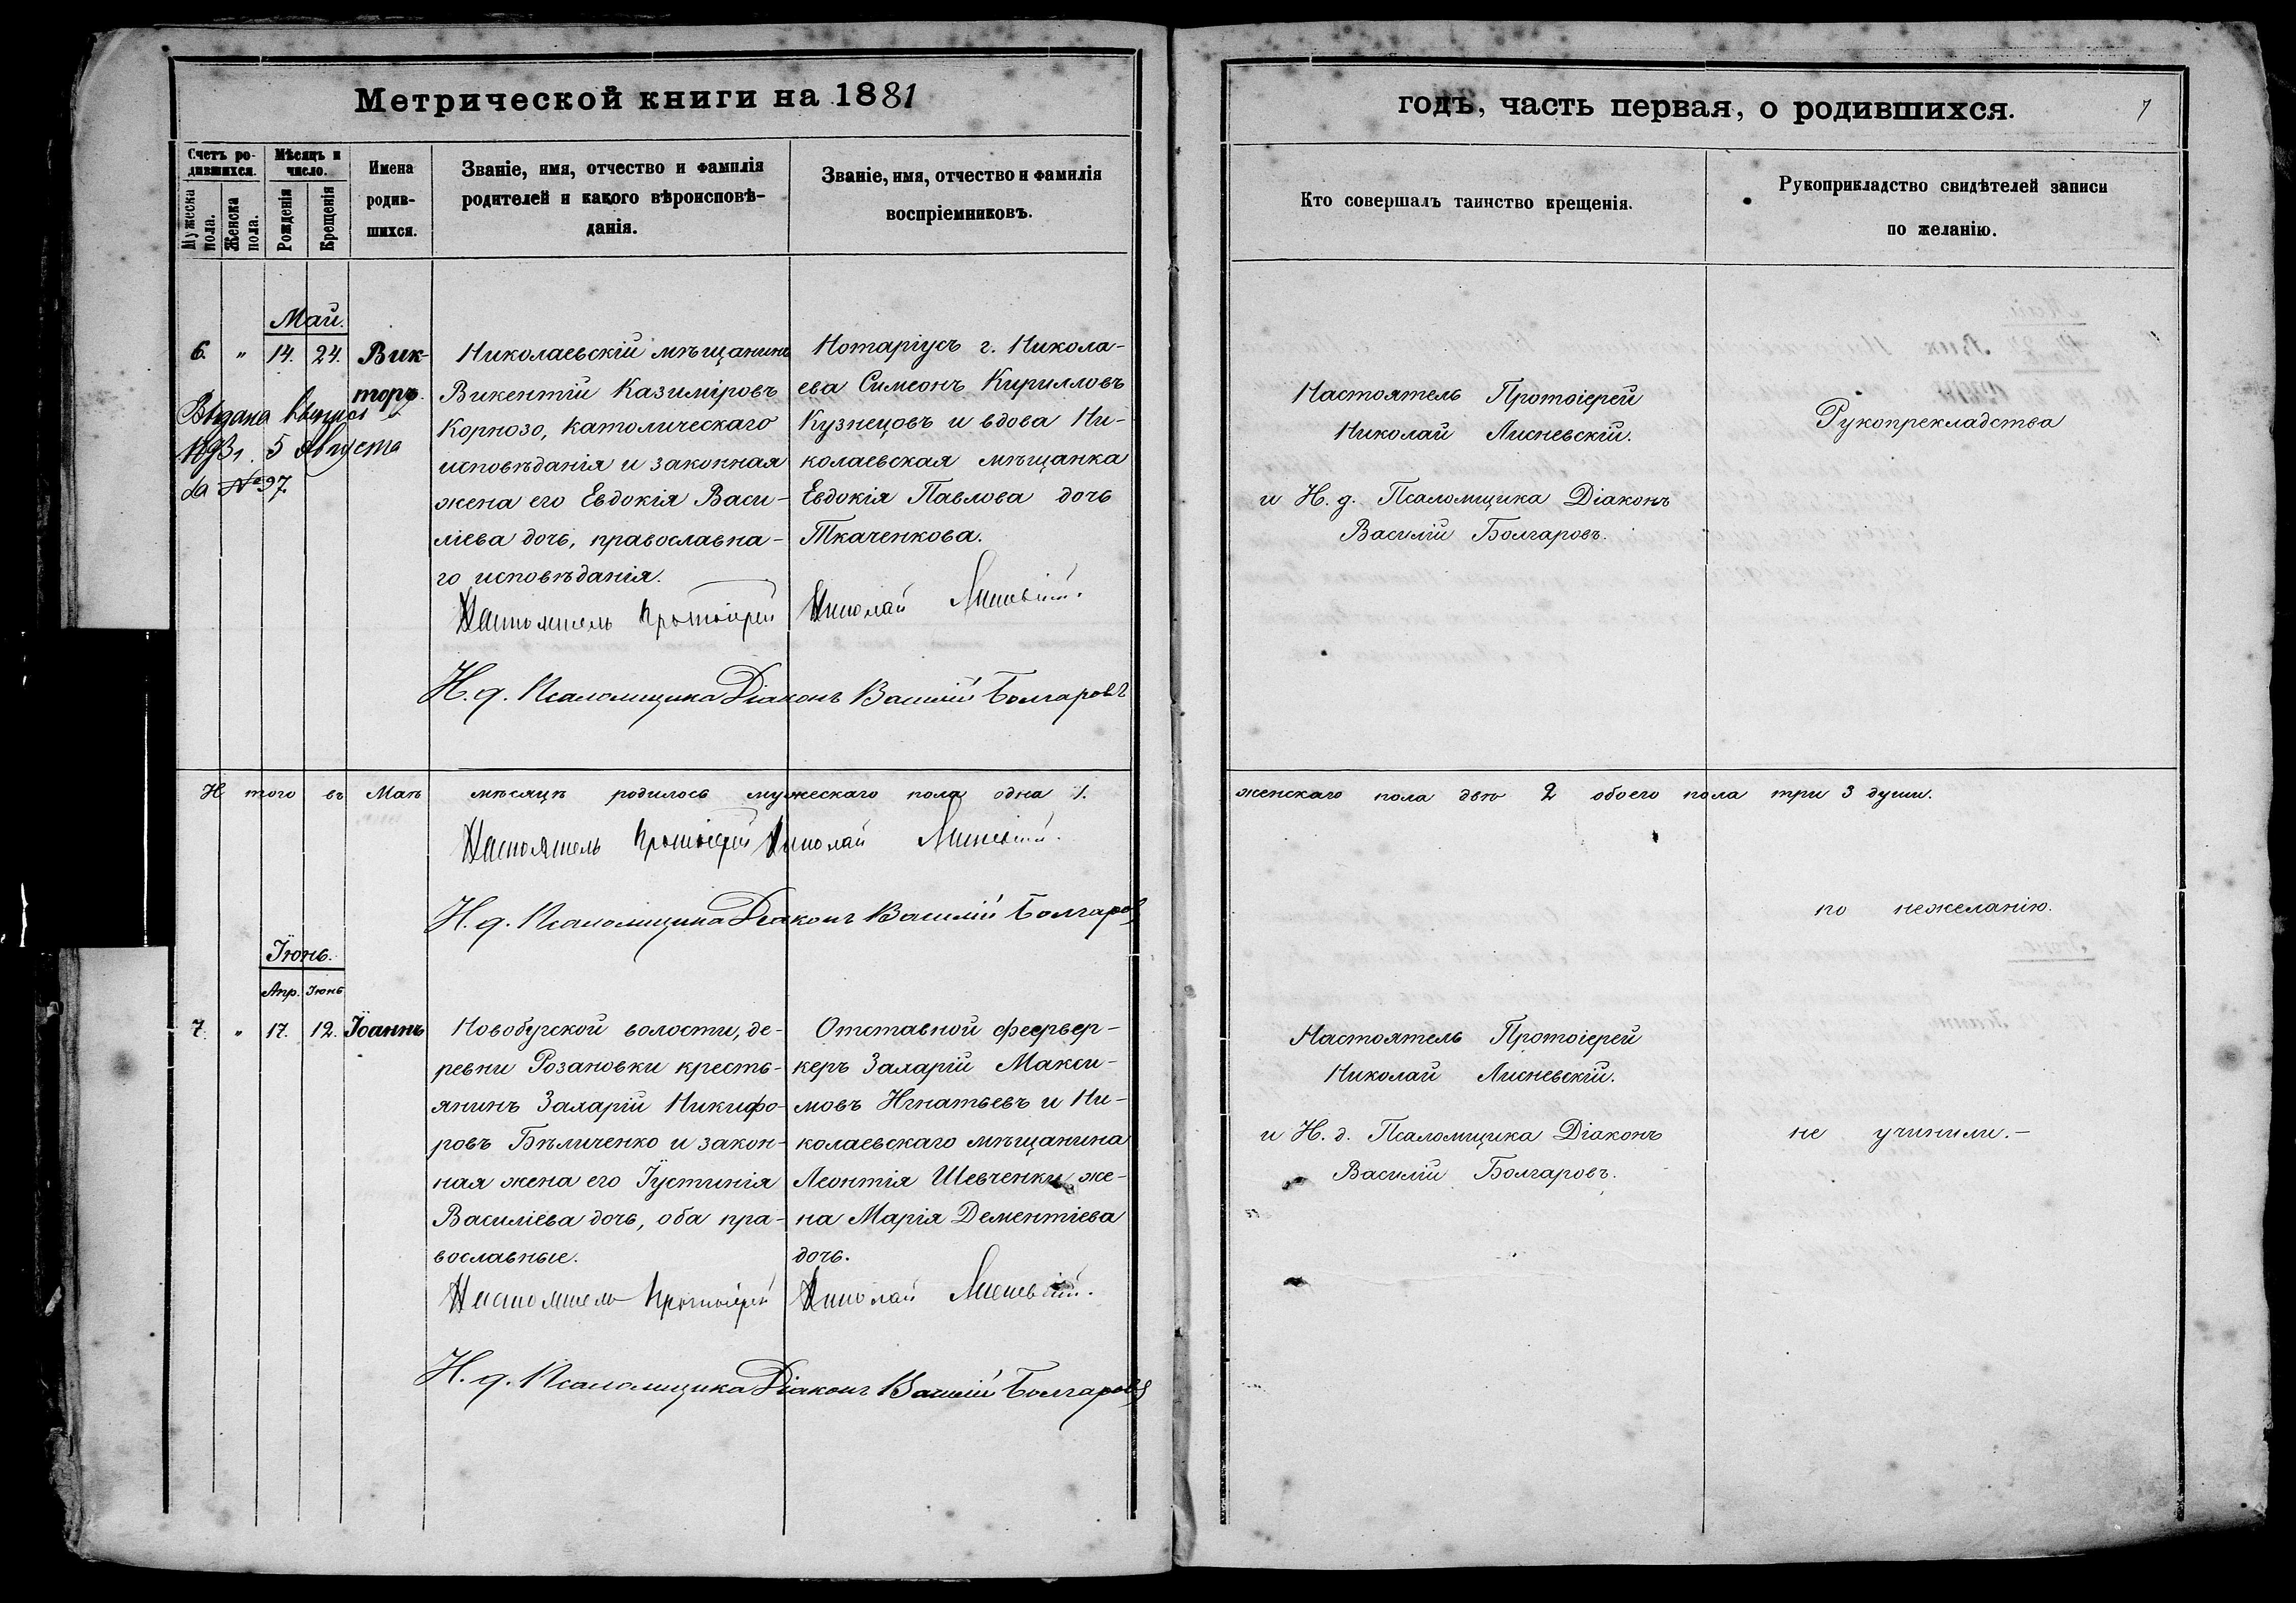 Метрической книги на 1881
Счетъ ро-
дившихся.
Мѣсяцъ и
число.
Мужеска
пола.
Женска
пола.
Рожденія
Крещенія
Имена
родив-
шихся.
Званіе, имя, отчество и фамилія
родителей и какого вѣроисповѣ-
данія.
Званіе, имя, отчество и фамилія
воспріемниковъ.
Май.
6. " 14. 24. Вик-
торъ.
Выдана
5 Августа
за № 97.
Николаевскій мѣщанинъ
Викентій Казиміровъ
Корнозо, католическаго
исповѣданія и законная
жена его Евдокія Васи-
ліева дочь, православна-
го исповѣданія.
Нотаріусъ г. Никола-
ева Симеонъ Кирилловъ
Кузнецовъ и вдова Ни-
колаевская мѣщанка
Евдокія Павлова дочь
Ткаченкова.
Настоятель Протоіерей Николай Лисневскій.
И. д. Псаломщика Діаконъ Василій Болгаровъ
Итого въ Маѣ мѣсяцѣ родилось мужескаго пола одна 1.
Настоятель Протоіерей Николай Лисневскій.
И. д. Псаломщика Діаконъ Василій Болгаровъ
Іюнь.
Апр. Іюнь
7. " 17. 12. Іоаннъ
Новобугской волости, де-
ревни Розановки кресть-
янинъ Захарій Никифо-
ровъ Бѣличенко и закон-
ная жена его Іустинія
Василіева дочь, оба пра-
вославные.
Отставной феервер-
керъ Захарій Макси-
мовъ Игнатьевъ и Ни-
колаевскаго мѣщанина
Леонтія Шевченки же-
на Марія Дементіева
дочь.
Настоятель Протоіерей Николай Лисневскій.
И. д. Псаломщика Діаконъ Василій Болгаровъ
годъ, часть первая, о родившихся.
7
Кто совершалъ таинство крещенія.
Рукоприкладство свидѣтелей записи
по желанію.
Настоятель Протоіерей
Николай Лисневскій.
и И. д. Псаломщика Діаконъ
Василій Болгаровъ.
Рукопрекладства
женскаго пола двѣ 2 обоего пола три 3 души.
по нежеланію.
Настоятель Протоіерей
Николай Лисневскій.
и И. д. Псаломщика Діаконъ
Василій Болгаровъ.
не учинили.—